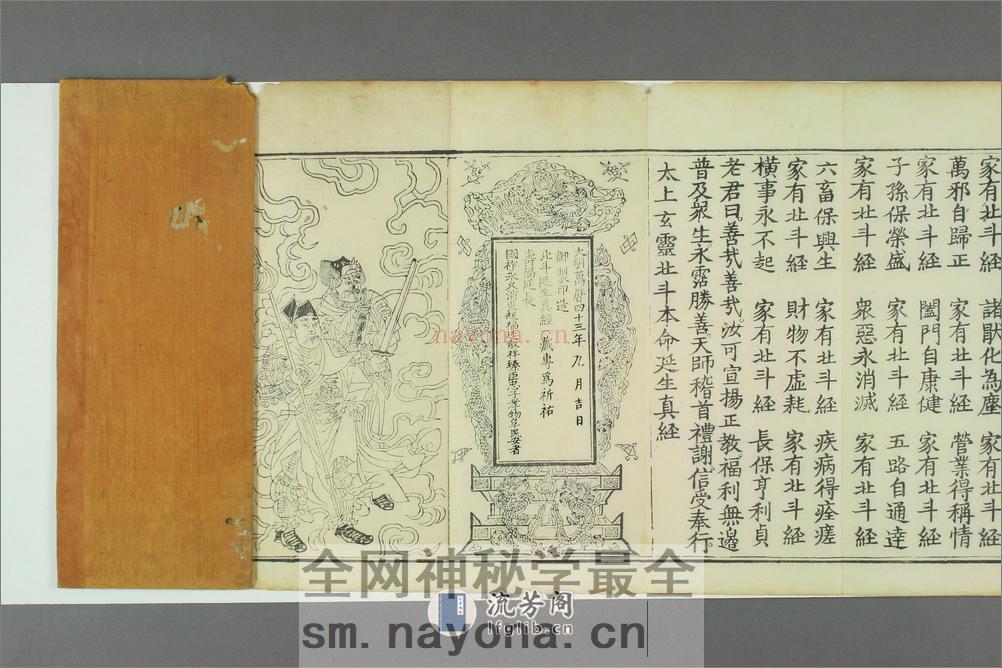 家有北斗經　諸厭化為塵　家有北斗經
萬邪自歸正　家有北斗經　營業得稱情
家有北斗經　闔門自康健　家有北斗經
子孫保榮盛　家有北斗經　五路自通達
家有北斗經　衆惡永消滅　家有北斗經
六畜保興生　家有北斗經　疾病得痊瘥
家有北斗經　財物不虛耗　家有北斗經
橫事永不起　家有北斗經　長保亨利貞
老君曰善哉善哉汝可宣揚正教福利無邊
普及衆生永霑勝善天師稽首禮謝信受奉行
太上玄靈北斗本命延生真經
大明萬曆四十三年九月吉日
御製印造
北斗延生真經一藏專爲祈祐
壽福延長
國祚永久消災
nayona.cn
全网神秘学最全
流芳阁
lfglib.cn
sm.nayona.cn